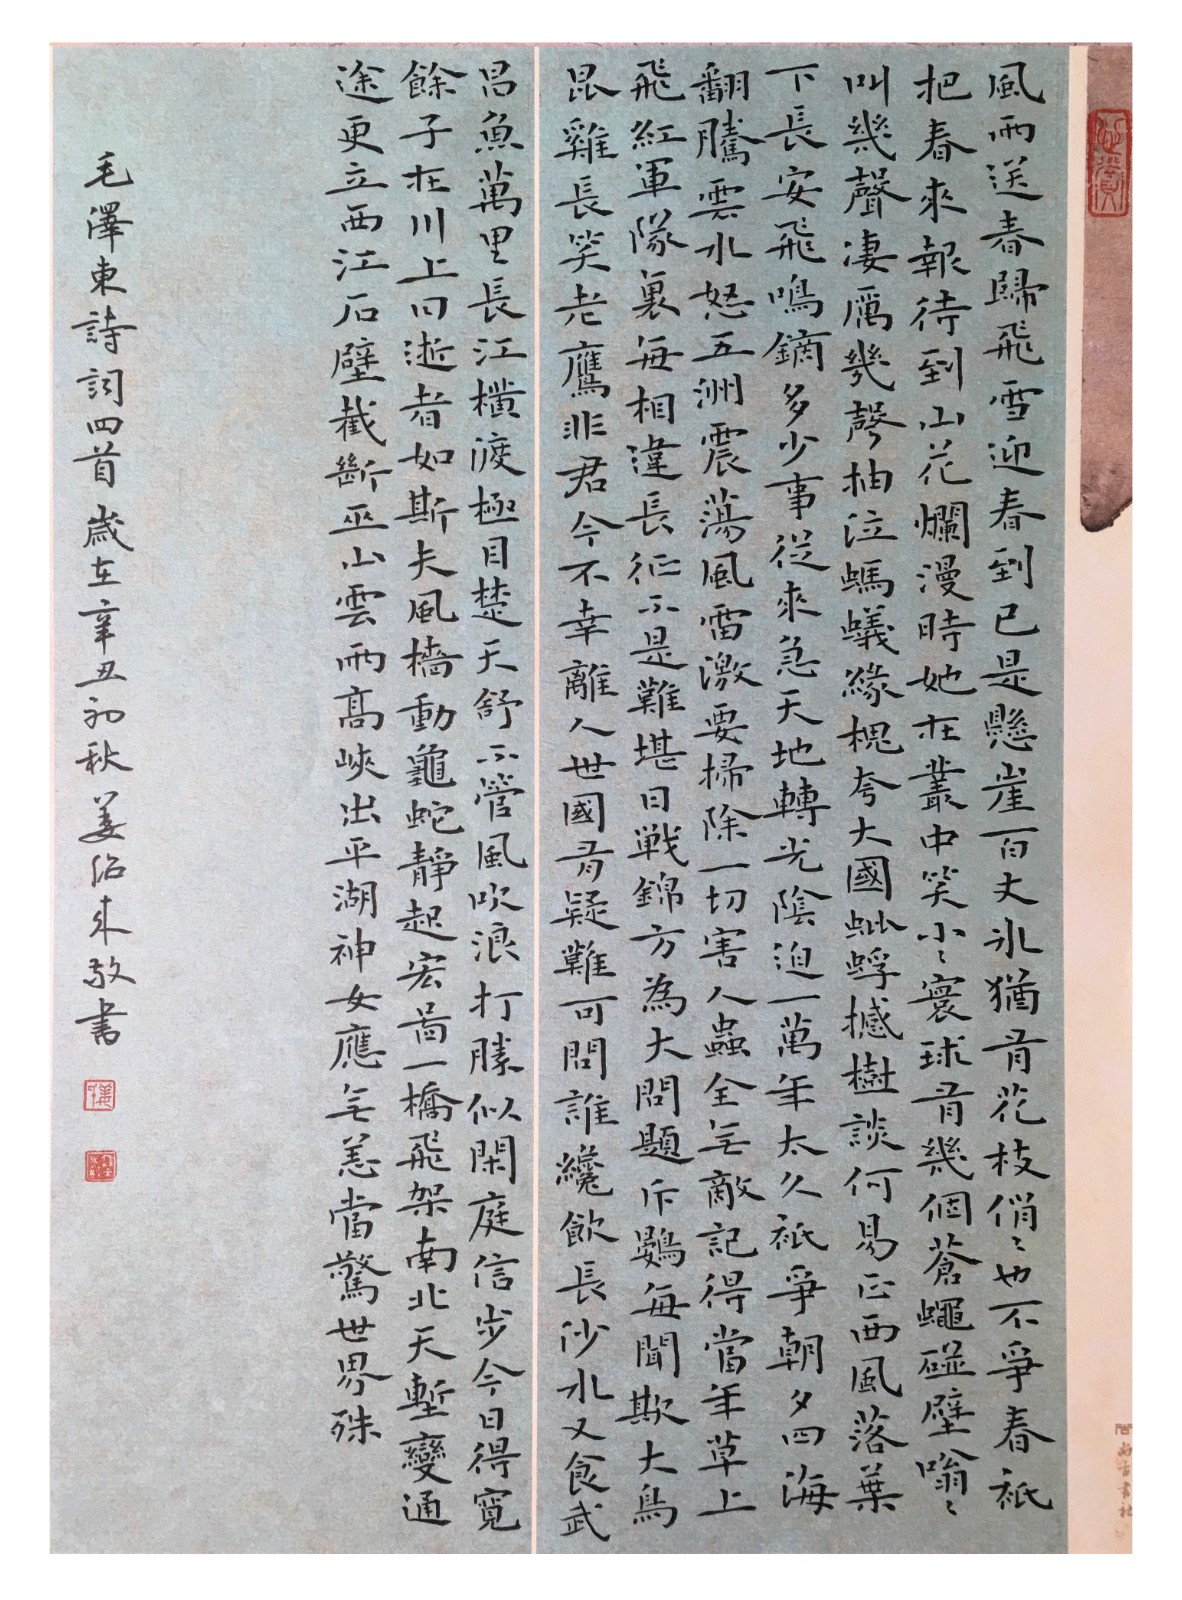 風雨送春歸飛雪迎春到已是懸崖百丈冰猶有花枝俏〻也不爭春祇
把春來報待到山花爛漫時她在叢中笑小〻寰球有幾個蒼蠅碰壁嗡〻
叫幾聲凄厲幾聲抽泣螞蟻緣槐夸大國蚍蜉撼樹談何易正西風落葉
下長安飛鳴鏑多少事從來急天地轉光陰迫一萬年太久祇爭朝夕四海
翻騰雲水怒五洲震蕩風雷激要掃除一切害人蟲全无敵記得當年草上
飛紅軍隊裏每相違長征不是難堪日戰錦方為大問題斥鷃每聞欺大鳥
昆雞長笑老鷹非君今不幸離人世國有疑難可問誰纔飲長沙水又食武
昌魚萬里長江橫渡極目楚天舒不管風吹浪打勝似閑庭信步今日得寬
餘子在川上曰逝者如斯夫風檣動龜蛇靜起宏圖一橋飛架南北天塹變通
途更立西江石壁截斷巫山雲雨高峽出平湖神女應无恙當驚世界殊
毛澤東詩詞四首歲在辛丑初秋姜來敬書